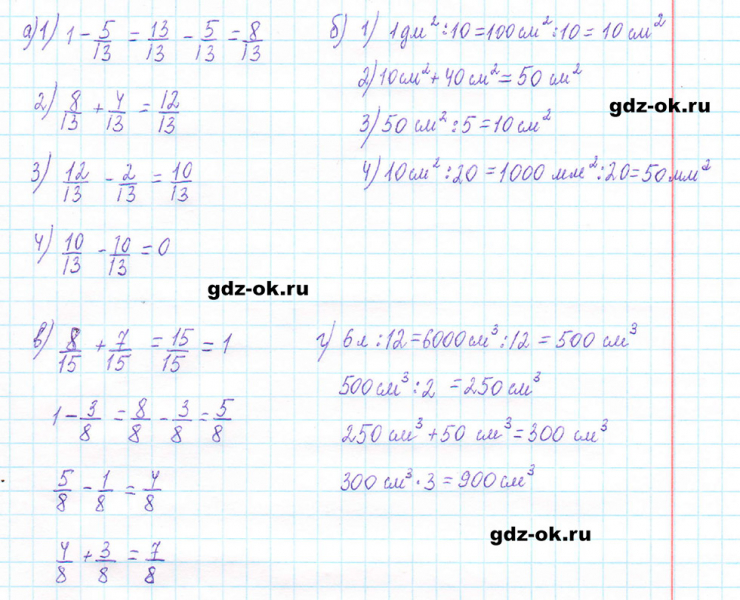 а) 1) 1 - 5/13 = 13/13 - 5/13 = 8/13
2) 8/13 + 4/13 = 12/13
3) 12/13 - 2/13 = 10/13
4) 10/13 - 10/13 = 0
б) 1) 1дм²:10=100см²:10= 10 см²
2) 10см²+40см²=50 см²
gdz-ok.ru
3) 50 см²:5=10см²
4) 10см²:20 =1000 мм²:20=50мм²
gdz-ok.ru
в) 8/15 + 7/15 = 15/15 = 1
1 - 3/8 = 8/8 - 3/8 = 5/8
5/8 - 1/8 = 4/8
4/8 + 3/8 = 7/8
г) 6л:12=6000см³:12 = 500 см³
500см³:2 =250см³
250 см³+50 см³=300 см³
300 см³·3 =900см³
gdz-ok.ru